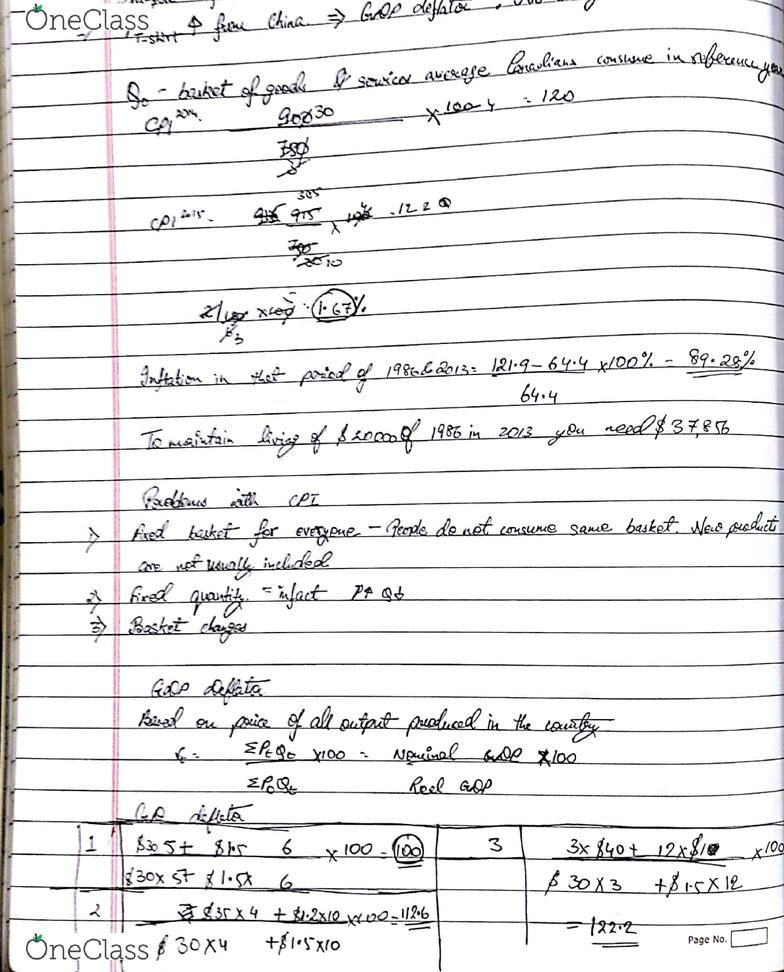 OneClass
T-shirt ↑ from China ⇒ GDP deflator
Q₀ - basket of goods & services average Canadians consume in reference year
CPI 2014. 900 30 × 100 4 = 120
750
CPI 2015 - 305
915 975 × 100 - 122
750
30 10
2/120 × 100 = 1.67%
3
Inflation in that period of 1986 & 2013 = 121.9 - 64.4 × 100% = 89.28%
64.4
To maintain living of $20000 of 1986 in 2013 you need $37,856
Problems with CPI
1) Fixed basket for everyone - People do not consume same basket. New products
are not usually included
2) Fixed quantity = infact P↑ Q↓
3) Basket changes
GDP deflator
Based on price of all output produced in the country
= ΣPtQt × 100 = Nominal GDP × 100
ΣP₀Qt Real GDP
GDP deflator
1 $30 5 + $1.5 6 × 100 = 100 3 3 × $40 + 12 × $1 × 100
$30 × 5 + $1.5 × 6 $30 × 3 + $1.5 × 12
2 $35 × 4 + $1.2 × 10 × 100 = 112.6 = 122.2
$30 × 4 + $1.5 × 10
Page No.
OneClass